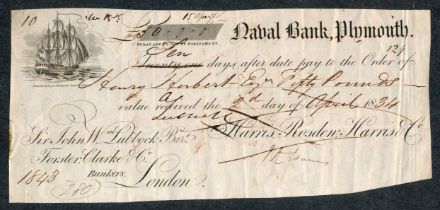 10
15 April
£50-0-0
PURSUANT TO ACT OF PARLIAMENT.
Naval Bank, Plymouth.
Ten
Twenty one days after date pay to the Order of
Henry Herbert Esqr Fifty Pounds
value received the 2nd day of April 1834
Sir John Wm. Lubbock, Bart.
Harris, Rosdew, Harris & Co
Forster, Clarke & Co.
Bankers,
1843
London.